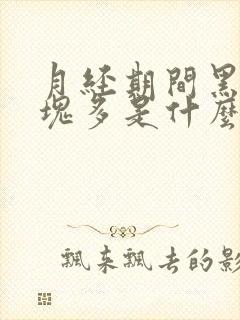 月经期間黑
塊多是什麼
飄来飄去的影